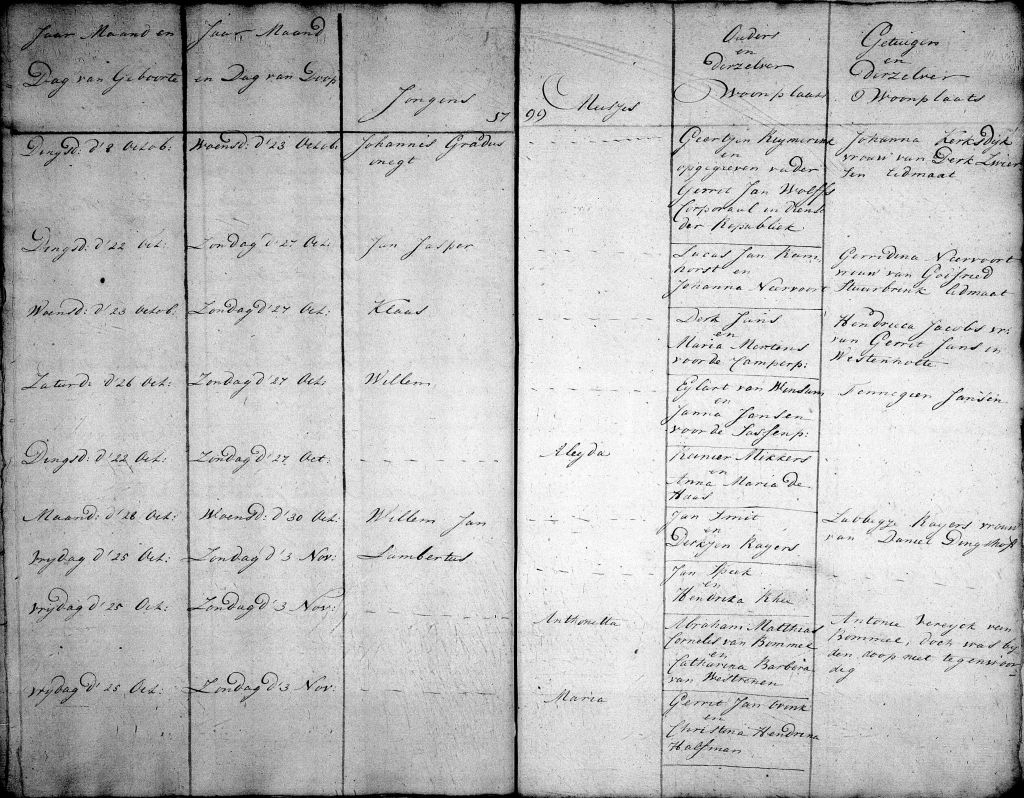 Jaar Maand en
Dag van Geboorte
Jaar Maand
en Dag van Doop
Jongens
17
99
Meisjes
Ouders
en
derzelver
Woonplaats
Getuigen
en
Derzelver
Woonplaats
Dingsd: d' 8 Octob:
Woensd: d' 23 Octob:
Johannis Gradus
onegt
Geertjen Reymerink
en
opgegeven vader
Gerrit Jan Wolffs
Corporaal in dienst
der Republiek
Johanna Kerksdijk
vrouw van Derk Zwier
sen Ledmaat
Dingsd: d' 22 Oct:
Zondag d' 27 Oct:
Jan Jasper
Lucas Jan Ram
horst en
Johanna Veervoort
Gerridina Veervoort
vrouw van Goifried
Stuurbrink Ledmaat
Woensd: d' 23 Octob.
Zondag d' 27 Oct:
Klaas
Derk Jans
en
Maria Mertens
voor de Camperp:
Hendrica Jacobs vr:
van Gerrit Jans in
Westenholte
Zaturd: d' 26 Oct:
Zondag d' 27 Oct:
Willem
Eylart van Winsum
en
Janna Jansen
voor de Sassenp:
Tennegien Jansen
Dingsd: d' 22 Oct:
Zondag d' 27 Oct:
Aleyda
Renier Mekkers
en
Anna Maria de
Haas
Maand: d' 28 Oct:
Woensd: d' 30 Oct:
Willem Jan
Jan Smit
en
Derkjen Rayers
Rayers vrouw
van Daniel
Vrydag d' 25 Oct:
Zondag d' 3 Nov:
Lambertus
Jan Speek
en
Hendrika Khee
Vrydag d' 25 Oct:
Zondag d' 3 Nov:
Anthonetta
Abraham Matthias
Cornelis van Bommel
en
Catharina Barbera
van Westrenen
Antonia Vereyck van
Bommel, doch was by
den doop niet tegenwoor
dig
Vrydag d' 25 Oct:
Zondag d' 3 Nov:
Maria
Gerrit Jan brink
en
Christina Hendrina
Halfman